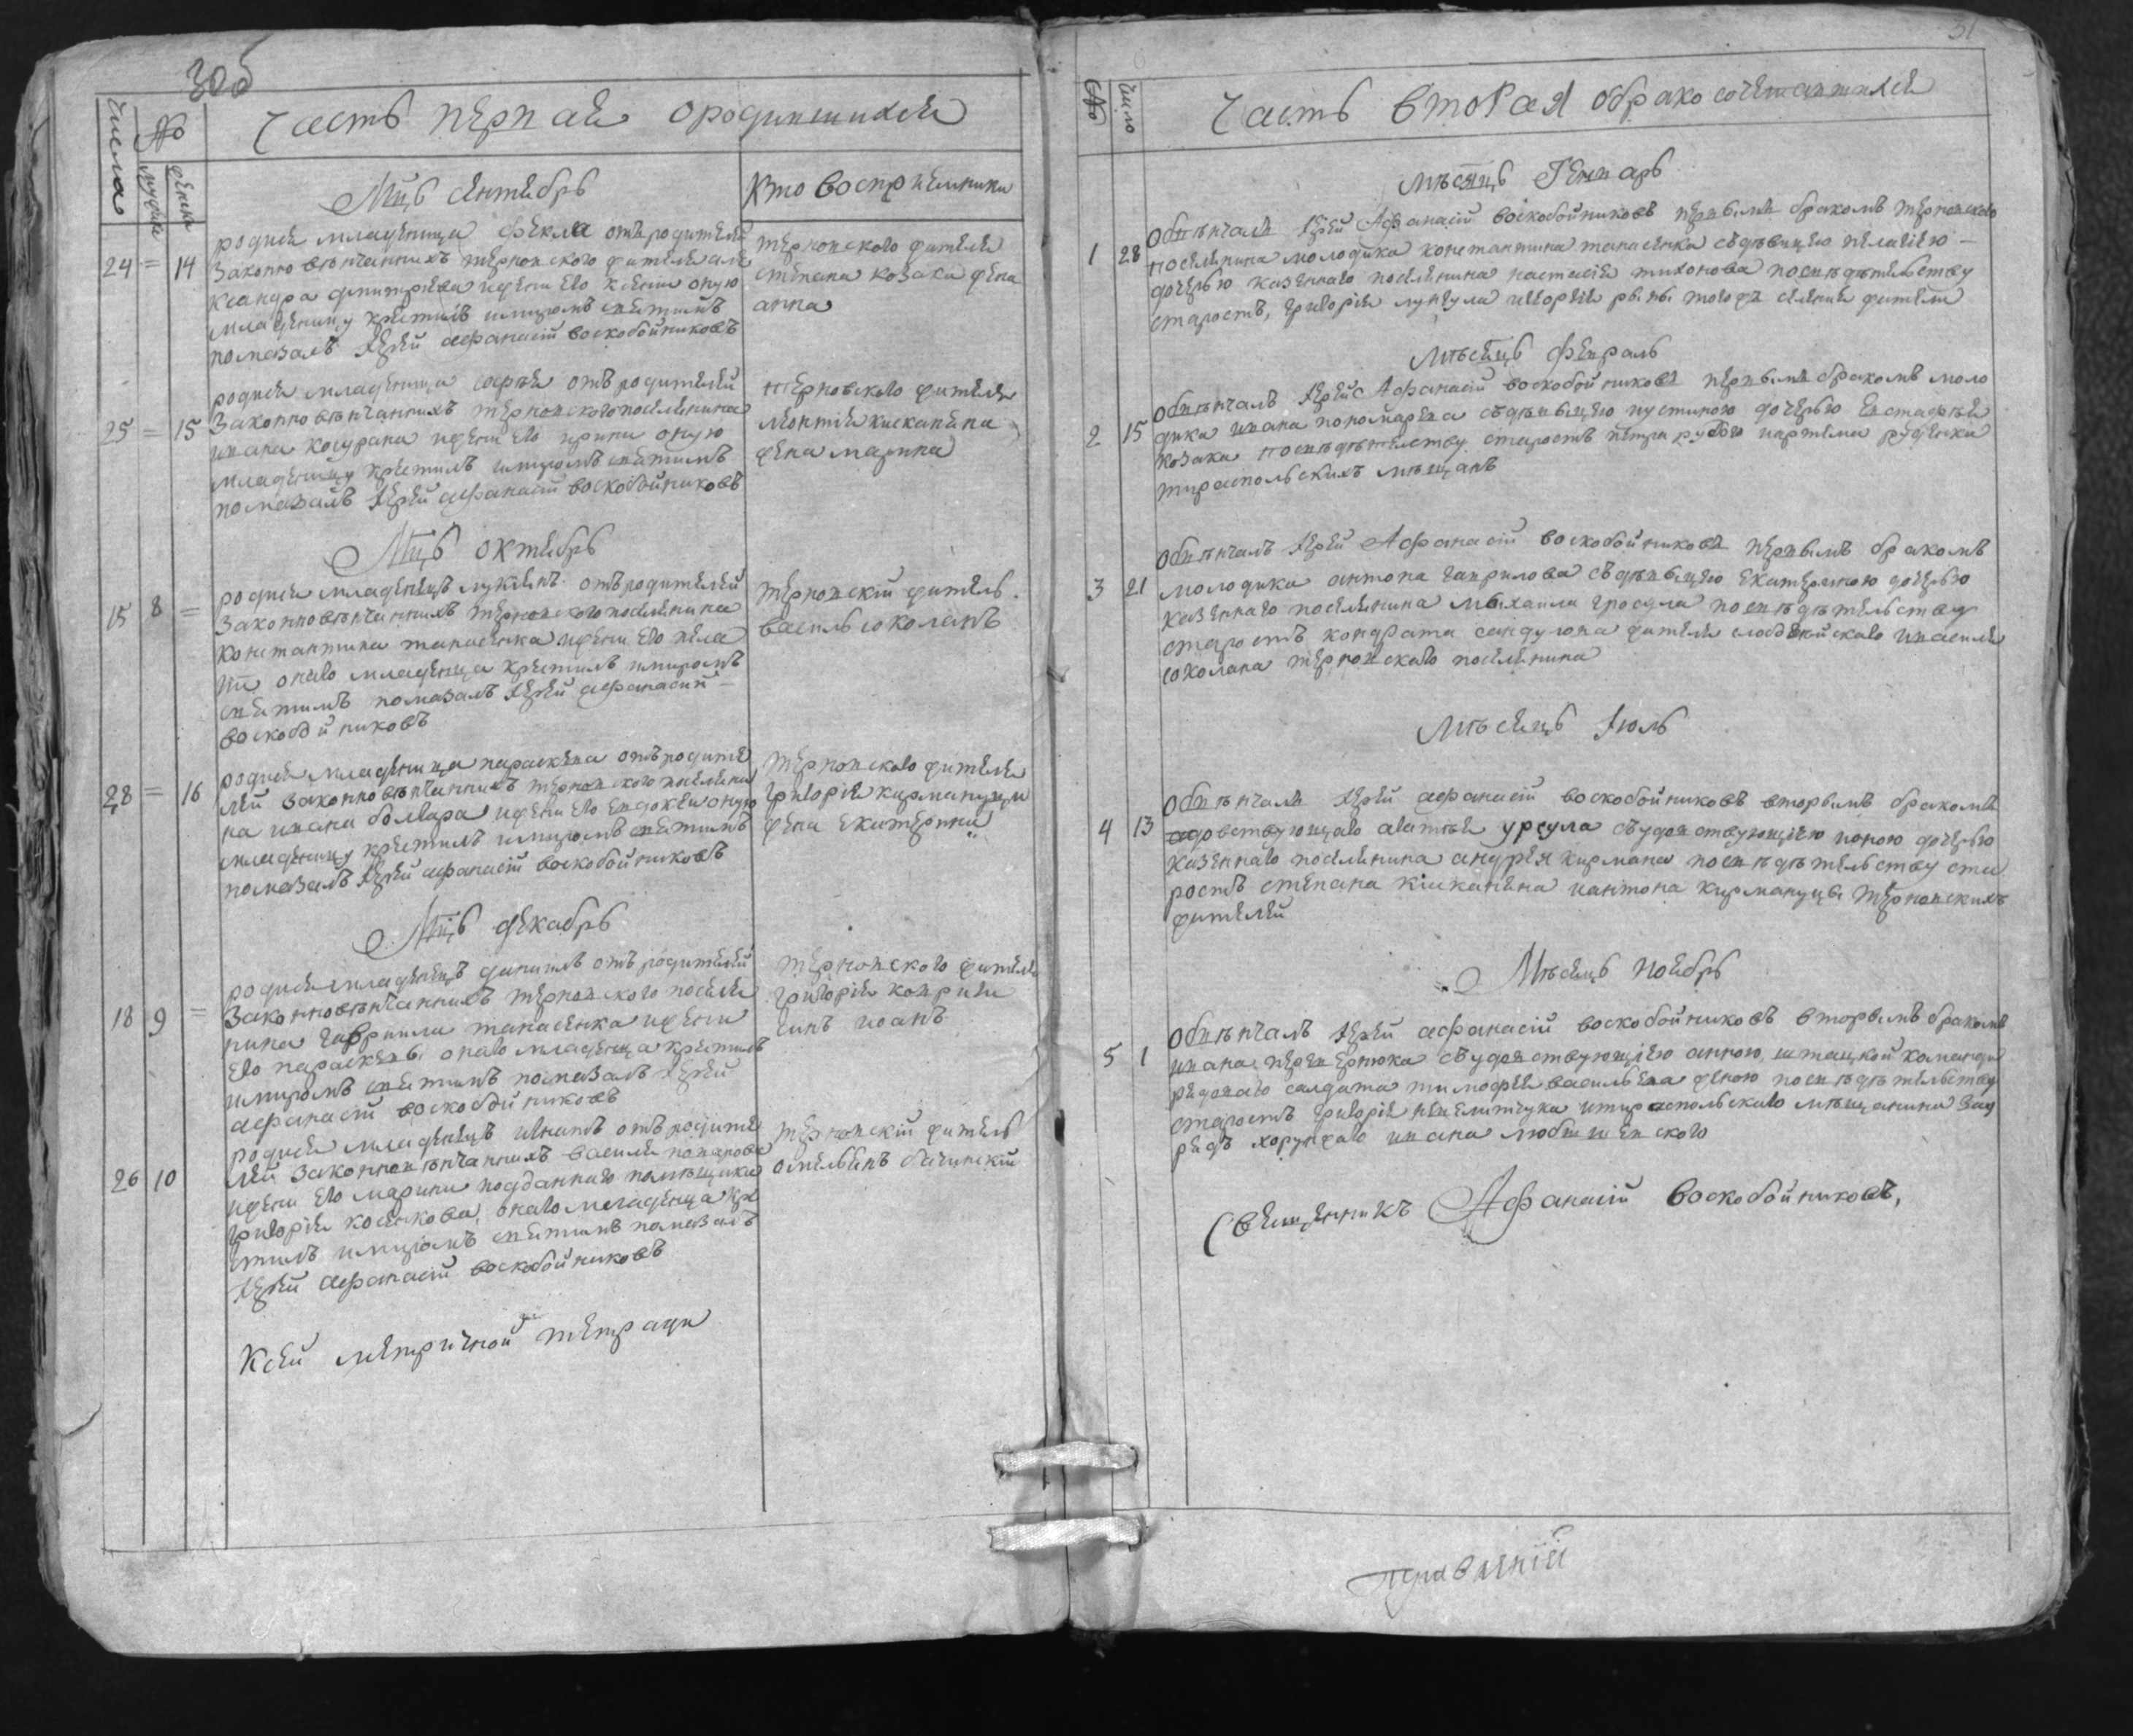 30б
Числа
№
мужск
женск
Часть первая о родившихся
Кто восприемники
Мцъ сентябрь
24 = 14
родися младеница фекла отъ родителей
законно венчанныхъ терновского жителя але
ксандра дмитрева и жени его ксении оную
младеницу крестилъ и миромъ святимъ
помазалъ Іерей афанасій воскобойниковъ
терновского жителя
степана козака жена
анна
25 = 15
родися младеница софия отъ родителей
законно венчанныхъ терновского поселенина
ивана и жени его ирини оную
младеницу крестилъ и миромъ святимъ
помазалъ Іерей афанасій воскобойниковъ
терновского жителя
леонтия
жена марина
Мцъ октябрь
15 8 =
родися младенецъ лукианъ отъ родителей
законновенчанныхъ терновского поселенина
константина танасенка и жени его пела
гіи оного младенца крестилъ и миромъ
святимъ помазалъ Іерей афанасий
воскобойниковъ
терновскій житель
василь соколанъ
28 = 16
родися младеница параскева отъ родите
лей законновенчанныхъ терновского поселени
на ивана болгара и жени его евдокеи оную
младеницу крестилъ и миромъ святимъ
помазалъ Іерей афанасій воскобойниковъ
терновского жителя
григория кирмануци
жена екатерина
Мцъ декабрь
18 9 =
родися младенецъ данилъ отъ родителей
законновенчанныхъ терновского поселе
нина гавриила танасенка и жени
его параскевы оного младенца крестилъ
и миромъ святимъ помазалъ Іерей
афанасій воскобойниковъ
терновского жителя
григория
синъ иоанъ
26 10
родися младенецъ игнатъ отъ родите
лей законновенчанныхъ василя
и жени его марини подданного помещика
григория косенкова оного младенца кре
стилъ и миромъ святимъ помазалъ
Іерей афанасій воскобойниковъ
терновскій житель
омельянъ
К сей метричной тетради
31
№
Число
Часть вторая о бракосочетавшихся
месяцъ Генварь
1 28
Обвенчалъ Іерей Афанасій воскобойниковъ первымъ бракомъ терновского
поселенина молодика константина танасенка съ девицею пелагіею
дочерью казенного поселенина настасіе тихонова по свидетельству
старостъ, григория лунгула и георгія рыбы того же селения жители
месяцъ февраль
2 15
Обвенчалъ Іерей Афанасій воскобойниковъ первымъ бракомъ моло
дика ивана пономарева съ девицею иустиною дочерью евстафея
козака по свидетельству старостъ петра рудого и артема руденка
тираспольскихъ мещанъ
3 21
Обвенчалъ Іерей Афанасій воскобойниковъ первымъ бракомъ
молодика антона гаврилова съ девицею екатериною дочерью
казенного поселенина михаила гросула по свидетельству
старостъ кондрата сандулова жителя слободзейского и василя
соколана терновского поселенина
Месяцъ Іюль
4 13
Обвенчалъ Іерей афанасій воскобойниковъ вторымъ бракомъ
вдовствующаго агатия урсула съ удовствующіею ионою дочерью
казенного поселенина андрея кирмана по свидетельству ста
ростъ степана и антона кирмануцы терновскихъ
жителей
Месяцъ ноябрь
5 1
Обвенчалъ Іерей афанасій воскобойниковъ вторымъ бракомъ
ивана съ удовствующіею анною, штацкой команди
редового салдата тимофея васильева женою по свидетельству
старостъ григория и тираспольского мещанина
ивана
Священникъ Афанасій Воскобойниковъ,